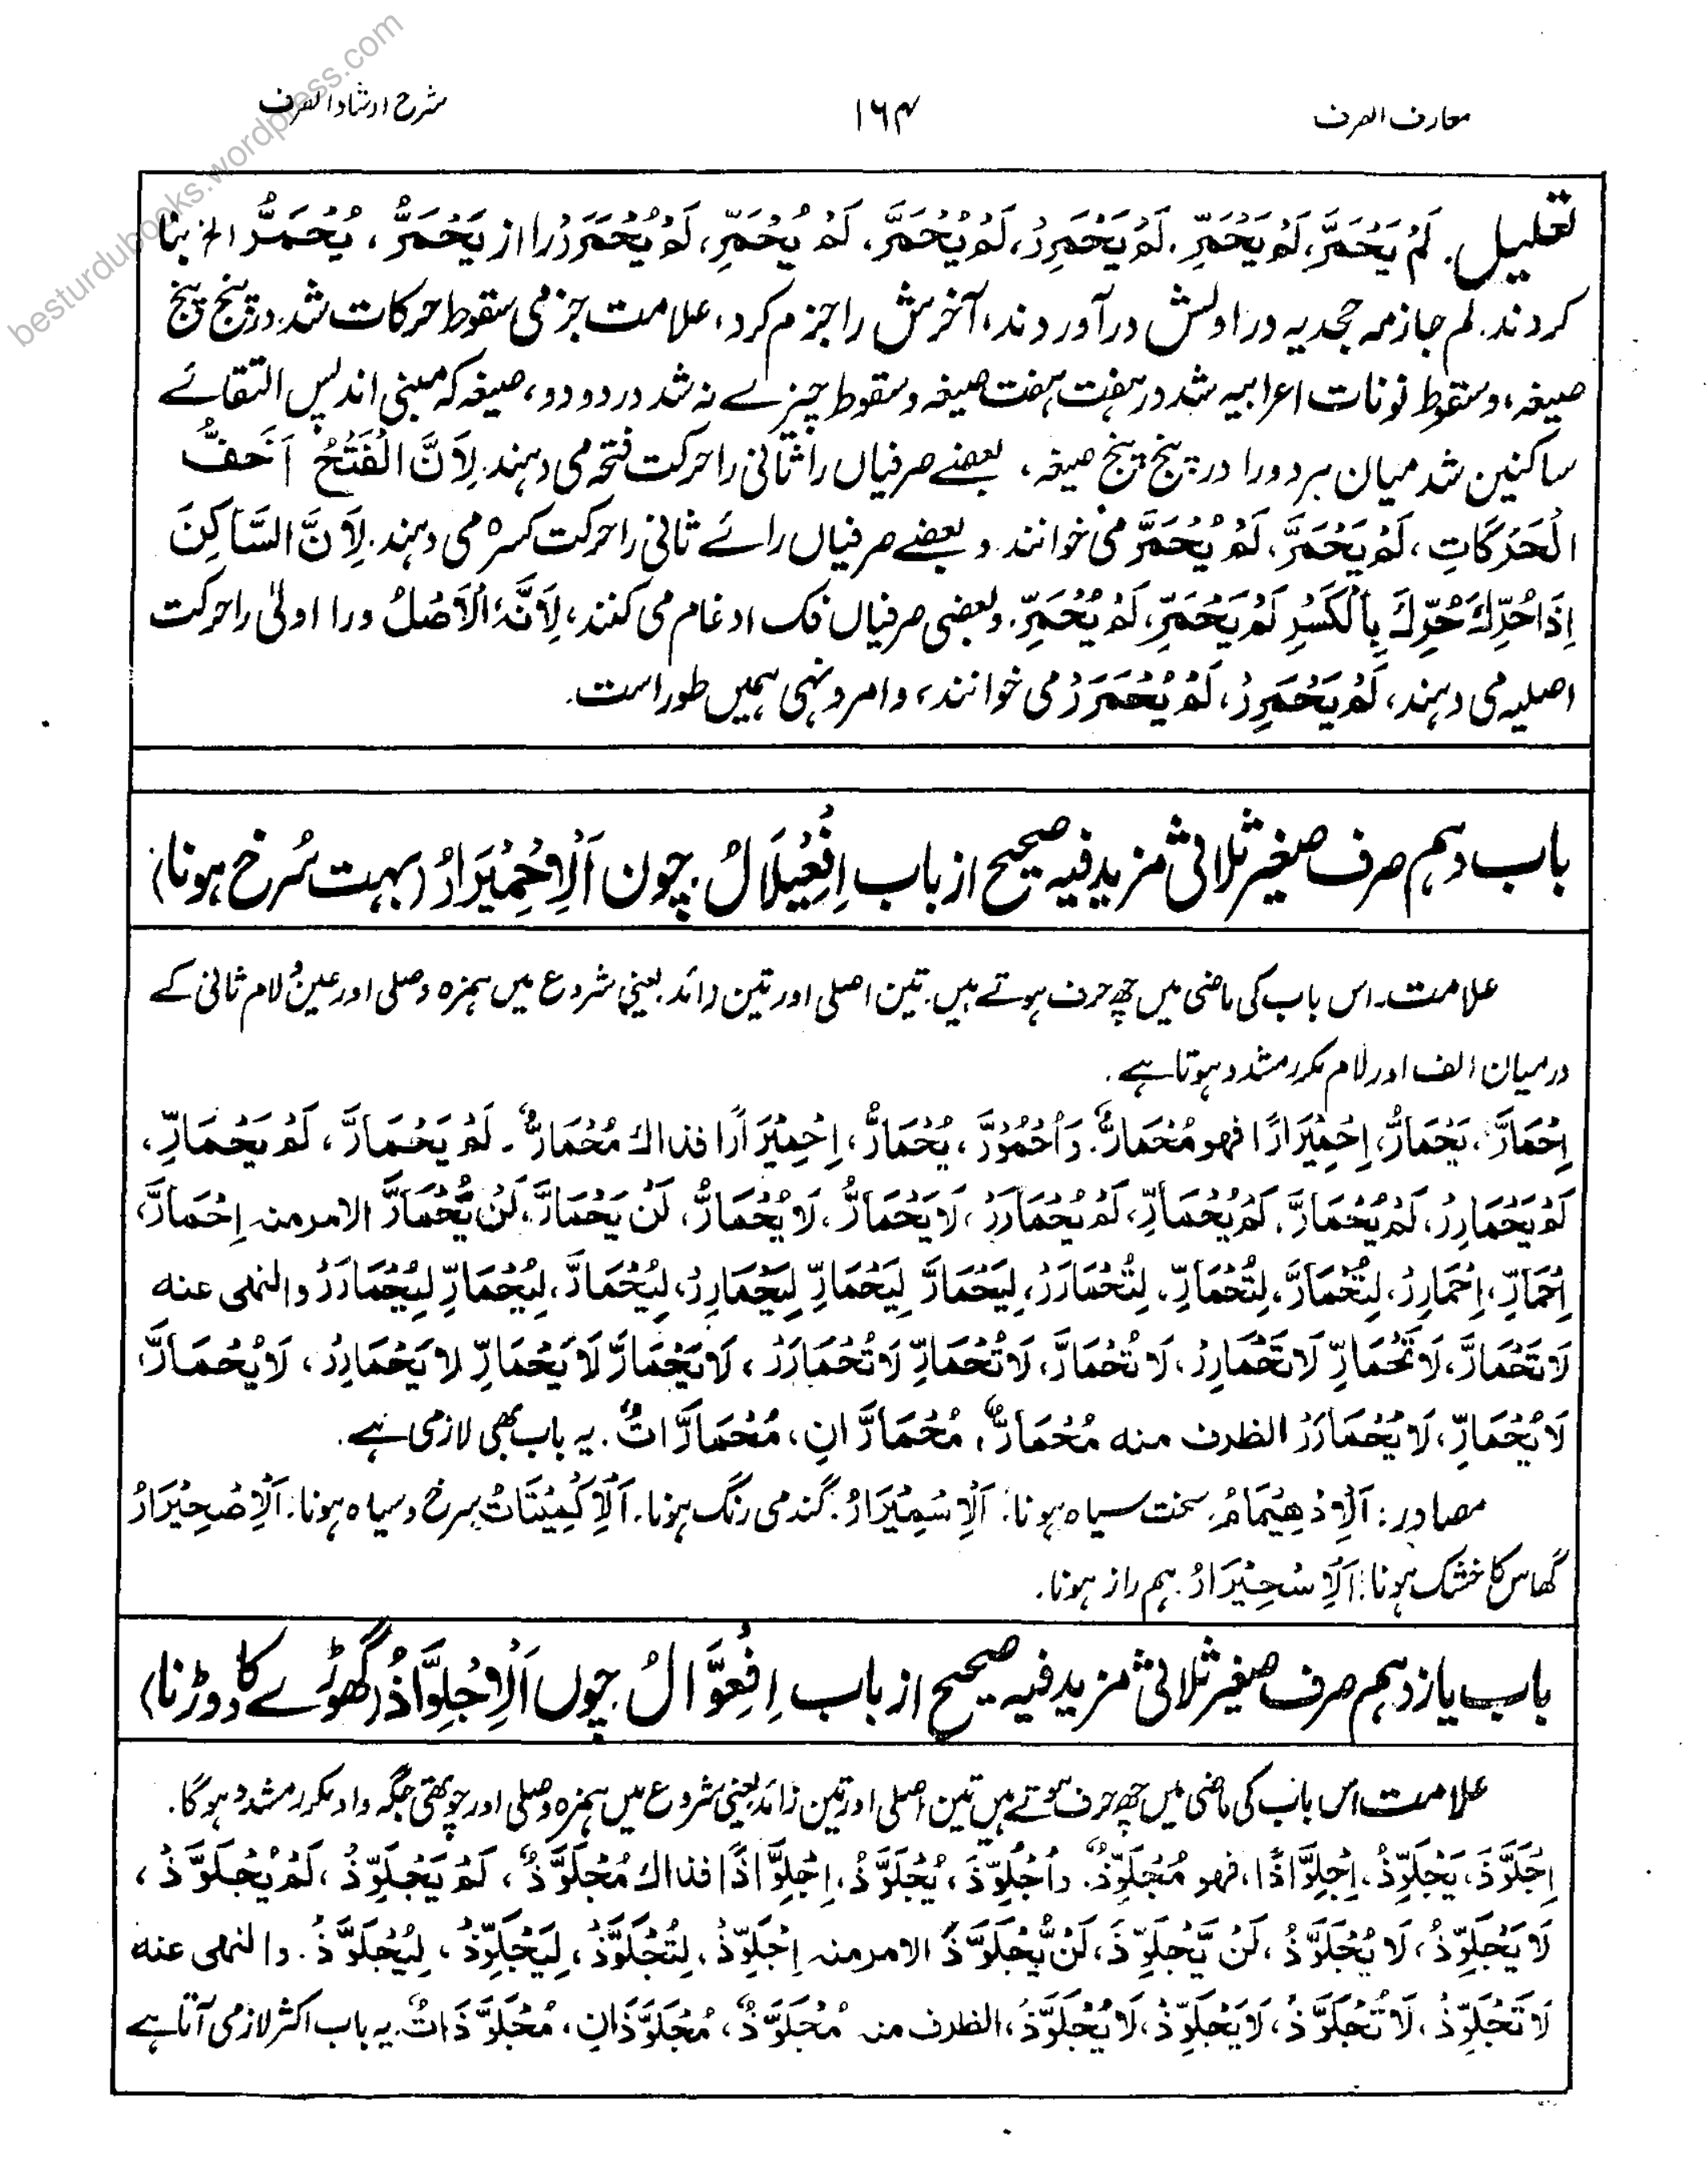 معارف الصرف
١٦٤
شرح ارشاد الصرف
besturdubooks.wordpress.com
تعلیل۔ لَمْ یَحْمَرَّ، لَمْ یَحْمَرِّ، لَمْ یَحْمَرِرْ، لَمْ یُحْمَرَّ، لَمْ یُحْمَرِّ، لَمْ یُحْمَرَرْ را از یَحْمَرُّ، یُحْمَرُّ الخ بنا
کردند۔ لم جازمہ جحدیہ در اولش در آوردند، آخرش را جزم کرد، علامت جزمی سقوط حرکات شد در پنج پنج
صیغہ، و سقوط نونات اعرابیہ شد در ہفت ہفت صیغہ و سقوط چیزے نہ شد در دو دو، صیغہ کہ مبنی اند پس التقائے
ساکنین شد میان ہر دو را در پنج پنج صیغہ، بعضے صرفیاں را ثانی را حرکت فتحہ می دہند لِاَنَّ الْفَتْحَ اَخَفُّ
الْحَرَکَاتِ، لَمْ یَحْمَرَّ، لَمْ یُحْمَرَّ می خوانند۔ و بعضے صرفیاں رائے ثانی را حرکت کسرہ می دہند۔ لِاَنَّ السَّاکِنَ
اِذَا حُرِّكَ حُرِّكَ بِالْکَسْرِ لَمْ یَحْمَرِّ، لَمْ یُحْمَرِّ۔ و بعضی صرفیاں فک ادغام می کنند، لِاَنَّہُ الْاَصْلُ ورا اولیٰ را حرکت
اصلیہ می دہند، لَمْ یَحْمَرِرْ، لَمْ یُحْمَرَرْ می خوانند، و امر و نہی ہمیں طور است۔
باب دہم صرف صغیر ثلاثی مزید فیہ صحیح از باب اِفْعِیْلَالْ چون اَلْاِحْمِیْرَارُ (بہت سُرخ ہونا)
علامت۔ اس باب کی ماضی میں چھ حرف ہوتے ہیں۔ تین اصلی اور تین زائد۔ یعنی شروع میں ہمزہ وصلی اور عین و لام ثانی کے
درمیان الف اور لام مکرر مشدد ہوتا ہے۔
اِحْمَارَّ، یَحْمَارُّ، اِحْمِیْرَارًا فھو مُحْمَارٌّ۔ وَاُحْمُوْرَّ، یُحْمَارُّ، اِحْمِیْرَارًا فذاك مُحْمَارٌّ۔ لَمْ یَحْمَارَّ، لَمْ یَحْمَارِّ،
لَمْ یَحْمَارِرْ، لَمْ یُحْمَارَّ، لَمْ یُحْمَارِّ، لَمْ یُحْمَارَرْ، لَا یَحْمَارُّ، لَا یُحْمَارُّ، لَنْ یَحْمَارَّ، لَنْ یُّحْمَارَّ الامر منہ اِحْمَارَّ،
اِحْمَارِّ، اِحْمَارِرْ، لِتُحْمَارَّ، لِتُحْمَارِّ، لِتُحْمَارَرْ، لِیَحْمَارَّ لِیَحْمَارِّ لِیَحْمَارِرْ، لِیُحْمَارَّ، لِیُحْمَارِّ لِیُحْمَارَرْ والنھی عنه
لَا تَحْمَارَّ، لَا تَحْمَارِّ لَا تَحْمَارِرْ، لَا تُحْمَارَّ، لَا تُحْمَارِّ لَا تُحْمَارَرْ، لَا یَحْمَارَّ لَا یَحْمَارِّ لا یَحْمَارِرْ، لَا یُحْمَارَّ،
لَا یُحْمَارِّ، لَا یُحْمَارَرْ الظرف منه مُحْمَارٌّ، مُحْمَارَّانِ، مُحْمَارَّاتٌ۔ یہ باب بھی لازمی ہے۔
مصادر: اَلْاِدْھِیْمَامُ۔ سخت سیاہ ہونا۔ اَلْاِسْمِیْرَارُ۔ گندمی رنگ ہونا۔ اَلْاِکْمِیْتَاتُ۔ سرخ و سیاہ ہونا۔ اَلْاِصْحِیْرَارُ
گھاس کا خشک ہونا: اَلْاِسْحِیْرَارُ۔ ہم راز ہونا۔
باب یازدہم صرف صغیر ثلاثی مزید فیہ صحیح از باب اِفْعِوَّالْ چوں اَلْاِجْلِوَّاذُ (گھوڑے کا دوڑنا)
علامت اس باب کی ماضی میں چھ حرف ہوتے ہیں تین اصلی اور تین زائد یعنی شروع میں ہمزہ وصلی اور چوتھی جگہ واو مکرر مشدد ہوگا۔
اِجْلَوَّذَ، یَجْلَوِّذُ، اِجْلِوَّاذًا، فھو مُجْلَوِّذٌ۔ واُجْلُوِّذَ، یُجْلَوَّذُ، اِجْلِوَّاذًا فذاك مُجْلَوَّذٌ، لَمْ یَجْلَوِّذْ، لَمْ یُجْلَوَّذْ،
لَا یَجْلَوِّذُ، لَا یُجْلَوَّذُ، لَنْ یَّجْلَوِّذَ، لَنْ یُّجْلَوَّذَ الامر منہ اِجْلَوِّذْ، لِتُجْلَوَّذْ، لِیَجْلَوِّذْ، لِیُجْلَوَّذْ۔ والنھی عنه
لَا تَجْلَوِّذْ، لَا تُجْلَوَّذْ، لَا یَجْلَوِّذْ، لَا یُجْلَوَّذْ، الظرف منہ مُجْلَوَّذٌ، مُجْلَوَّذَانِ، مُجْلَوَّذَاتٌ۔ یہ باب اکثر لازمی آتا ہے